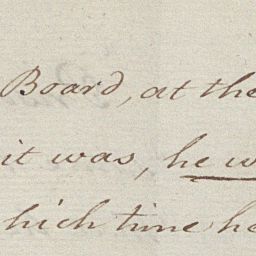 Board, at the
it was, he w
hich time he